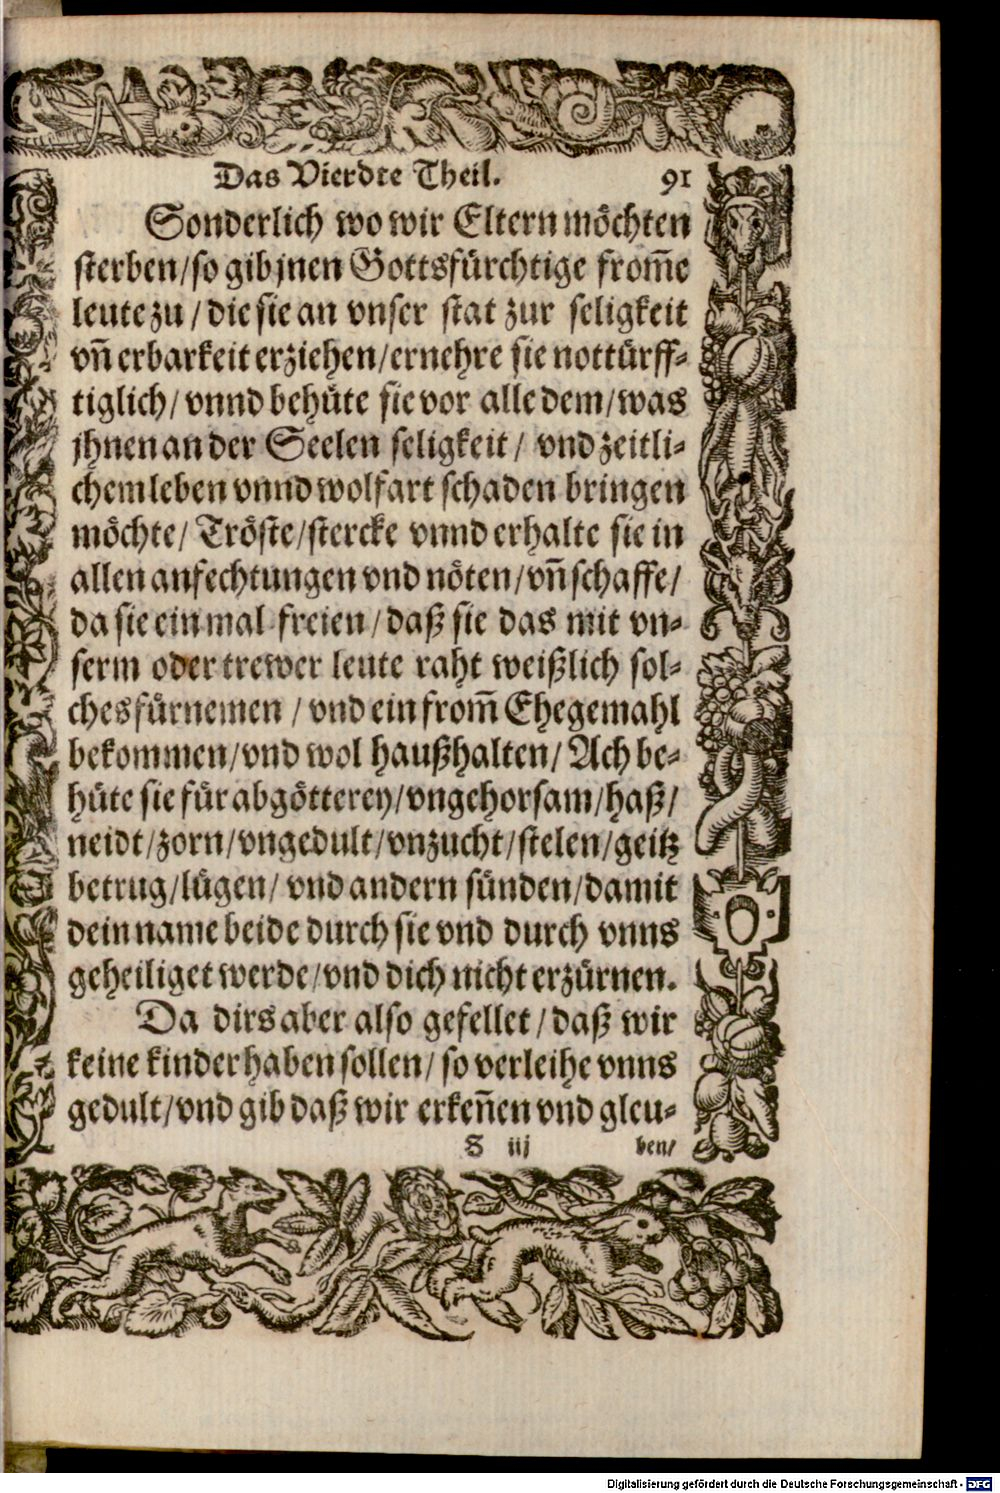 Das Vierdte Theil. 91
Sonderlich wo wir Eltern möchten
sterben/so gib jnen Gottsfürchtige from̃e
leute zu / die sie an vnser stat zur seligkeit
vñ erbarkeit erziehen/ernehre sie nottürff-
tiglich/ vnnd behüte sie vor alle dem/was
jhnen an der Seelen seligkeit/ vnd zeitli-
chem leben vnnd wolfart schaden bringen
möchte/ Tröste/stercke vnnd erhalte sie in
allen anfechtungen vnd nöten/vñ schaffe/
da sie ein mal freien/daß sie das mit vn-
serm oder trewer leute raht weißlich sol-
ches fürnemen / vnd ein from̃ Ehegemahl
bekommen/vnd wol haußhalten/ Ach be-
hüte sie für abgötterey/vngehorsam/haß/
neidt/zorn/vngedult/vnzucht/stelen/geitz
betrug/lügen/ vnd andern sünden/damit
dein name beide durch sie vnd durch vnns
geheiliget werde/vnd dich nicht erzürnen.
Da dirs aber also gefellet/daß wir
keine kinder haben sollen/ so verleihe vnns
gedult/vnd gib daß wir erkeñen vnd gleu-
S iij ben/
Digitalisierung gefördert durch die Deutsche Forschungsgemeinschaft - DFG